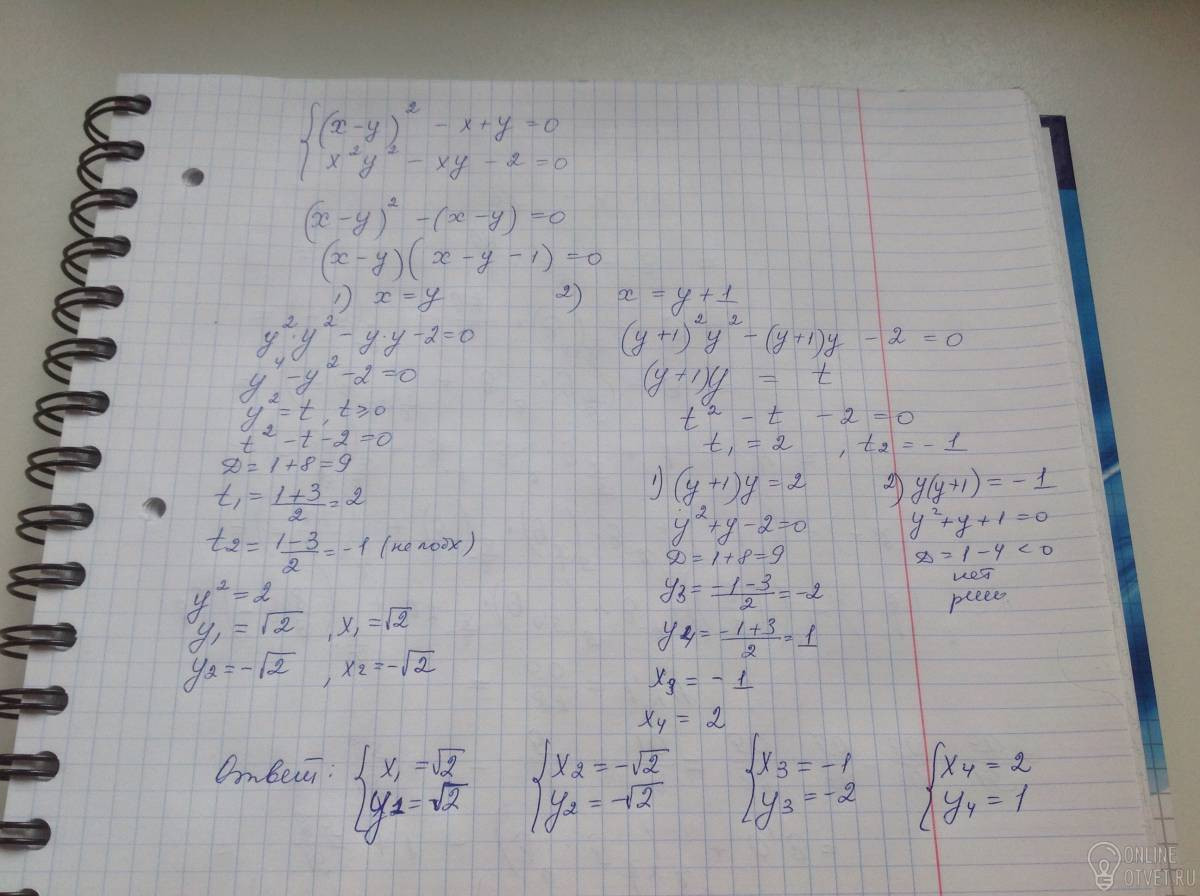 (x-y)² - x+y = 0
x²y² - xy - 2 = 0
(x-y)² - (x-y) = 0
(x-y)(x-y-1) = 0
1) x = y
y²·y² - y·y - 2 = 0
y⁴ - y² - 2 = 0
y² = t, t ≥ 0
t² - t - 2 = 0
D = 1+8 = 9
t₁ = (1+3)/2 = 2
t₂ = (1-3)/2 = -1 (не подх)
y² = 2
y₁ = √2, x₁ = √2
y₂ = -√2, x₂ = -√2
2) x = y+1
(y+1)²y² - (y+1)y - 2 = 0
(y+1)y = t
t² - t - 2 = 0
t₁ = 2, t₂ = -1
1) (y+1)y = 2
y² + y - 2 = 0
D = 1+8 = 9
y₃ = (-1-3)/2 = -2
y₄ = (-1+3)/2 = 1
x₃ = -1
x₄ = 2
2) y(y+1) = -1
y² + y + 1 = 0
D = 1-4 < 0
нет
реш
Ответ: { x₁ = √2 { x₂ = -√2 { x₃ = -1 { x₄ = 2
y₁ = √2 y₂ = -√2 y₃ = -2 y₄ = 1
ONLINE
OTVET.RU